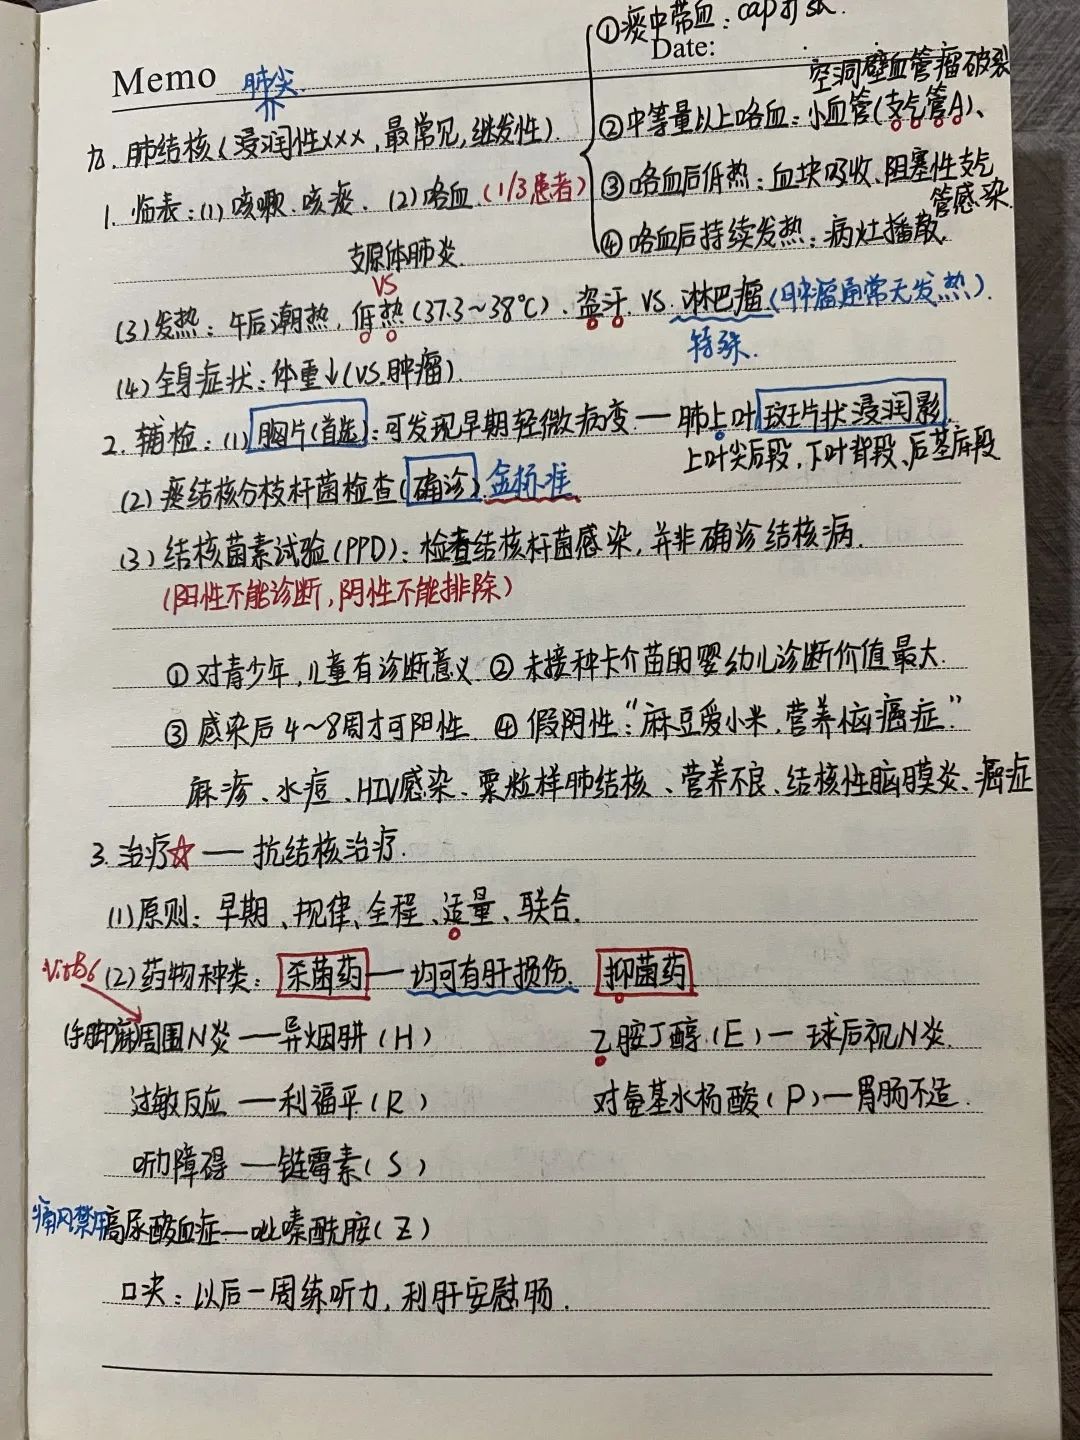 ①痰中带血：cap扩张.
Memo
Date:
肺尖.
空洞壁血管瘤破裂
九. 肺结核(浸润性xxx,最常见,继发性).
②中等量以上咯血：小血管(支气管A)、
1. 临表：(1) 咳嗽、咳痰. (2) 咯血.(1/3患者)
③咯血后低热：血块吸收、阻塞性支气
管感染.
④咯血后持续发热：病灶播散.
支原体肺炎.
VS
(3)发热：午后潮热.低热(37.3~38℃).盗汗.VS.淋巴瘤.(肿瘤通常无发热).
特殊.
(4)全身症状：体重↓(VS.肿瘤).
2. 辅检：(1) 胸片(首选)：可发现早期轻微病变 — 肺上叶斑片状浸润影.
上叶尖后段,下叶背段、后基底段
(2) 痰结核分枝杆菌检查(确诊)金标准
(3) 结核菌素试验(PPD)：检查结核杆菌感染,并非确诊结核病.
(阳性不能诊断,阴性不能排除)
①对青少年,儿童有诊断意义 ②未接种卡介苗的婴幼儿诊断价值最大.
③感染后4~8周才可阳性. ④假阴性:"麻豆爱小米,营养恼癌症"
麻疹、水痘、HIV感染、粟粒样肺结核、营养不良、结核性脑膜炎、癌症
3. 治疗☆ — 抗结核治疗.
(1)原则：早期、规律、全程、适量、联合.
VitB6
(2)药物种类：杀菌药—均可有肝损伤. 抑菌药
(手脚麻)周围N炎 — 异烟肼(H) 乙胺丁醇.(E)— 球后视N炎.
过敏反应 — 利福平(R) 对氨基水杨酸(P)—胃肠不适.
听力障碍 — 链霉素(S)
痛风禁用高尿酸血症—吡嗪酰胺(Z)
口决：以后一周练听力,利肝安慰肠.